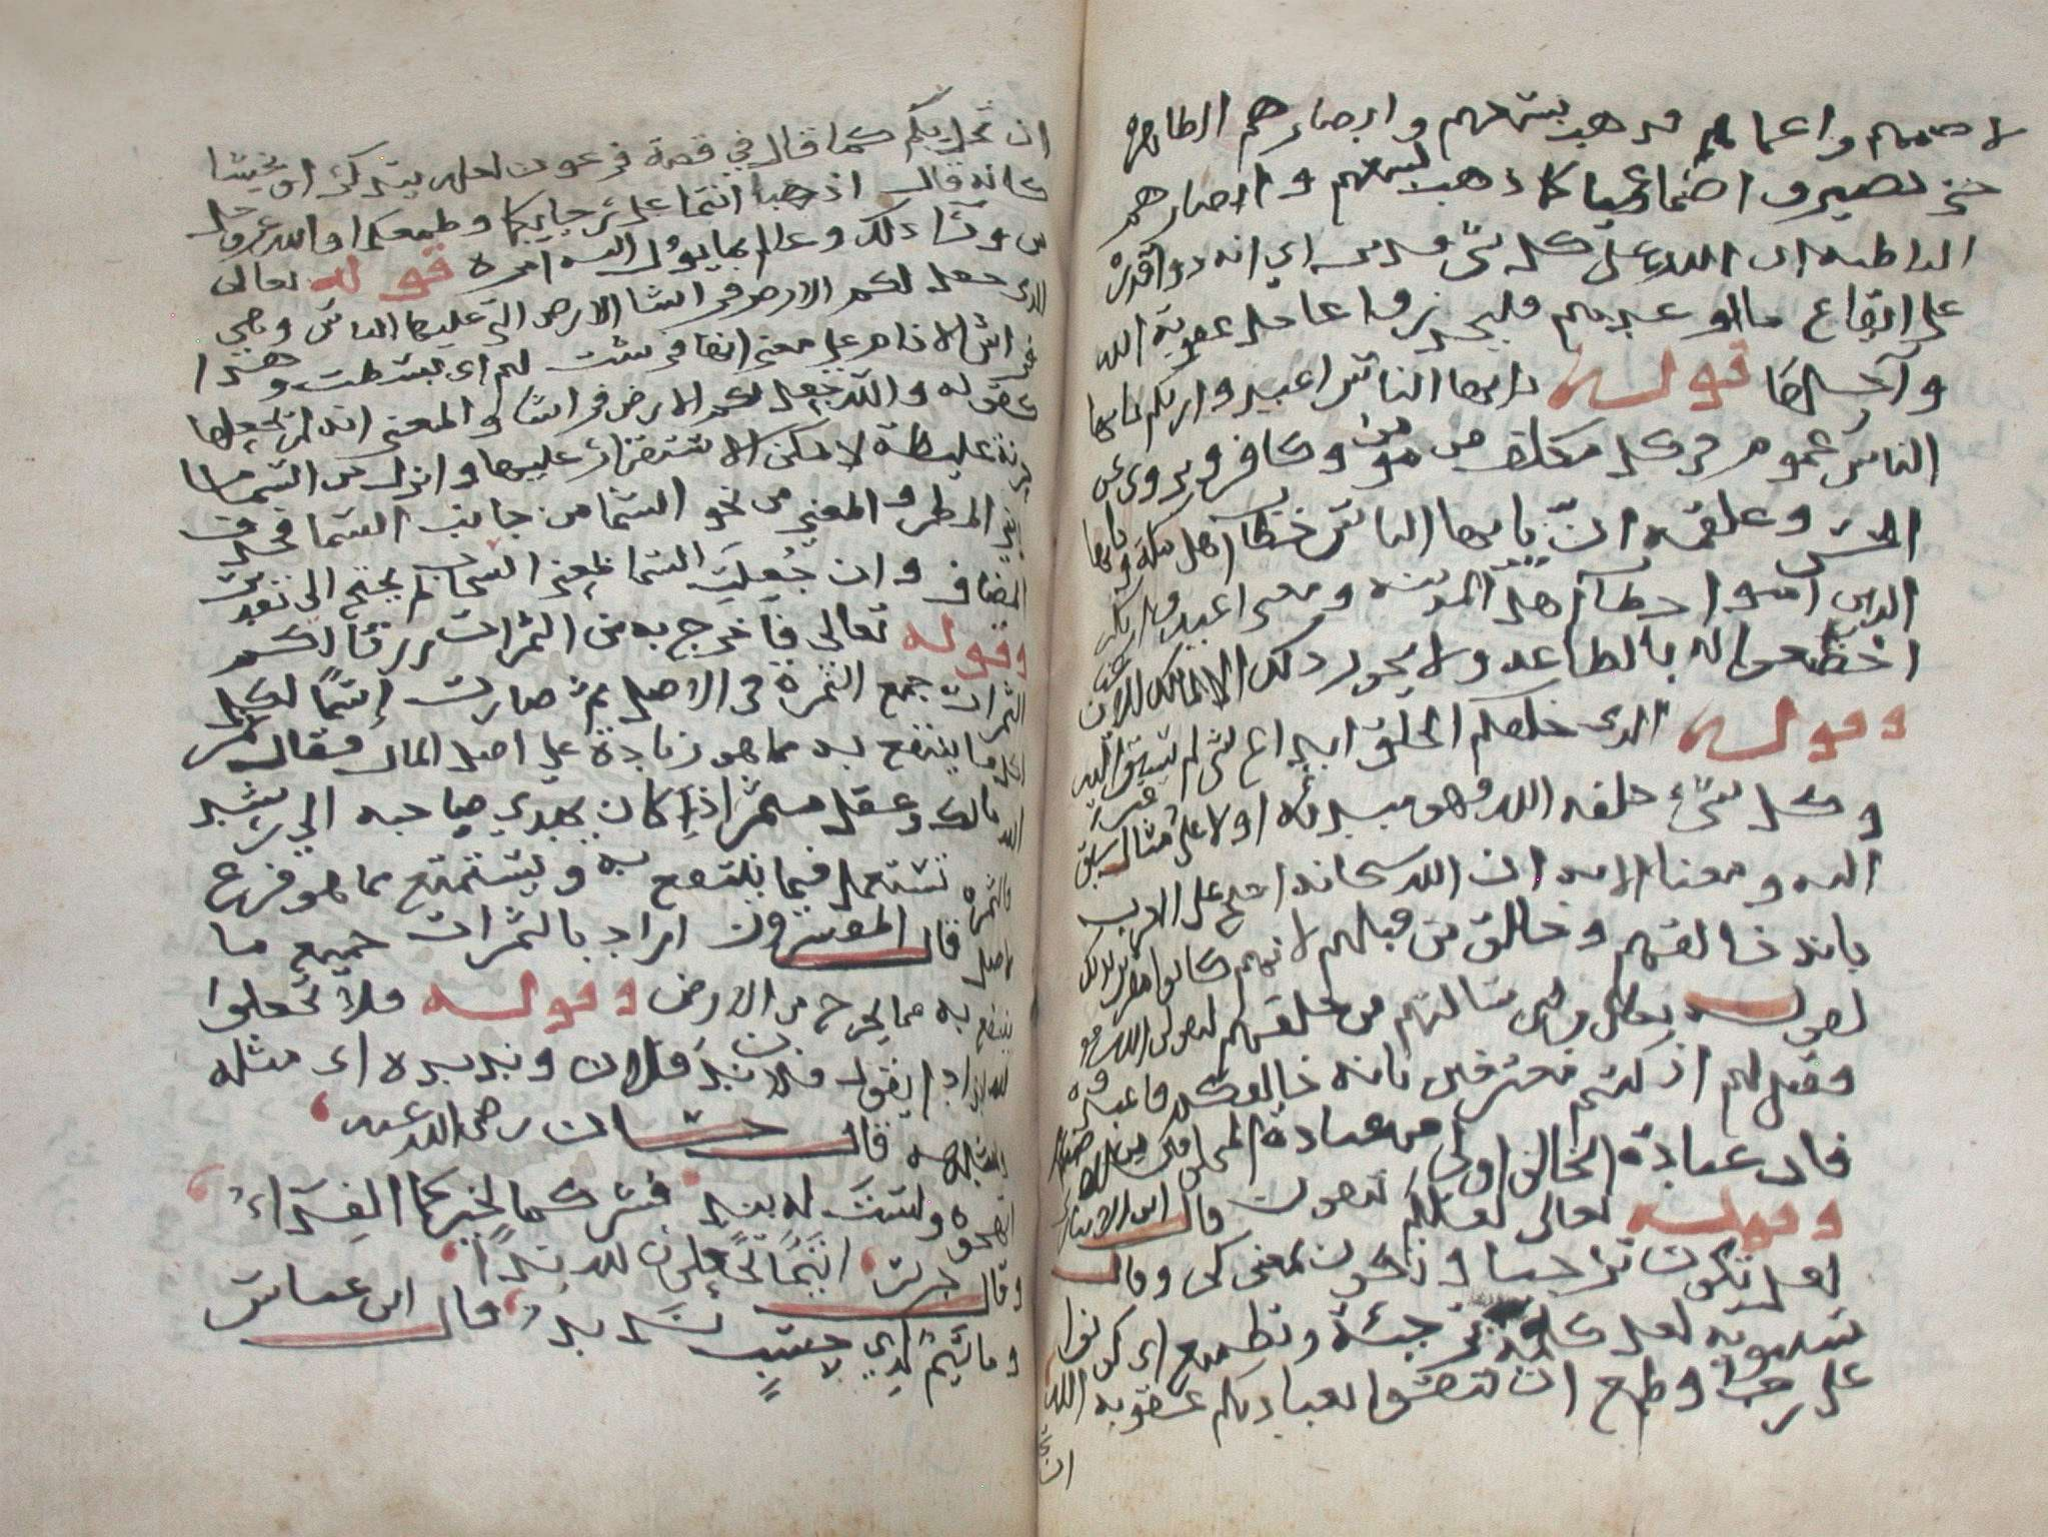 لاصمهم واعماهم فذهب بسمعهم وابصارهم الظاهره
حتى يصيروا صما عميا كما ذهب بسمعهم وابصارهم
الباطنه ان الله على كل شي قدير اي انه ذو اقدره
على ايقاع ما اوعدهم فليحذروا عاجل عقوبة الله
وآجلها قوله يايها الناس اعبدوا ربكم يايها
الناس عموم في كل مكلف من مومن وكافر ويروى عن
الحسن وعلقمه ان يايها الناس خطاب اهل مكة ويايها
الذين امنوا خطاب اهل المدينه ومعنى اعبدوا ربكم
اخضعوا له بالطاعه ولا يجوز ذلك الا لمالك الاعيان
وقوله الذي خلقكم الخلق ابداع شي لم يسبق اليه
وكل شيء خلقه الله فهو مبتدئه اولا على غير مثال سبق
اليه ومعنا الايه ان الله سبحانه احتج على العرب
بانه خالقهم وخالق من قبلهم لانهم كانوا مقرين بذلك
لقوله تعالى ولئن سالتهم من خلقهم ليقولن الله
فقيل لهم اذ كنتم معترفين بانه خالقكم فاعبدوه
فان عبادة الخالق اولى من عبادة المخلوقين
وقوله تعالى لعلكم تتقون قال ابن الانباري
لعل تكون ترجيا وتكون بمعنى كي وقال
سيبويه لعل كلمة ترجية وتطميع اي كونوا
على رجا وطمع ان تتقوا بعبادتكم عقوبة الله
ان تحل بكم كما قال في قصة فرعون لعله يتذكر او يخشا
كانه قال اذهبا انتما على رجايكما وطمعكما والله عز وجل
من ورآ ذلك وعالم بما يوول اليه امره قوله تعالى
الذي جعل لكم الارض فراشا الارض التي عليها الناس وهي
فراش الانام على معنى انها فرشت لهم اي بسطت وهذا
كقوله والله جعل لكم الارض فراشا والمعنى انه لم يجعلها
حزنة غليظة لا يمكن الاستقرار عليها وانزل من السما ما
يعني المطر والمعنى من نحو السما من جانب السما فحذف
المضاف وان جعلت السما بمعنى السحاب لم يحتج الى تقدير
وقوله تعالى فاخرج به من الثمرات رزقا لكم
الثمرات جمع الثمرة في الاصل ثم صارت إسمًا لكل
ما ينتفع به مما هو زيادة على اصل المال فقال ثمر
مالك وعقل مثمر اذا كان يهدي صاحبه الى رشد
والثمره تستعمل فيما ينتفع به ويستمتع مما هو فرع
لاصل قال المفسرون اراد بالثمرات جميع ما
ينتفع به مما يخرج من الارض وقوله فلا تجعلوا
لله اندادا يقول فلان ند فلان ونديده اي مثله
وشبهه قال حسان رضي الله عنه
اتهجوه ولستَ له بندٍ فشركما لخيركما الفِدَاءُ
وقال جرير اتيمًا تجعلون لله ندًا
وما تيمٌ لذي حسبٍ نَديد قال ابن عباس